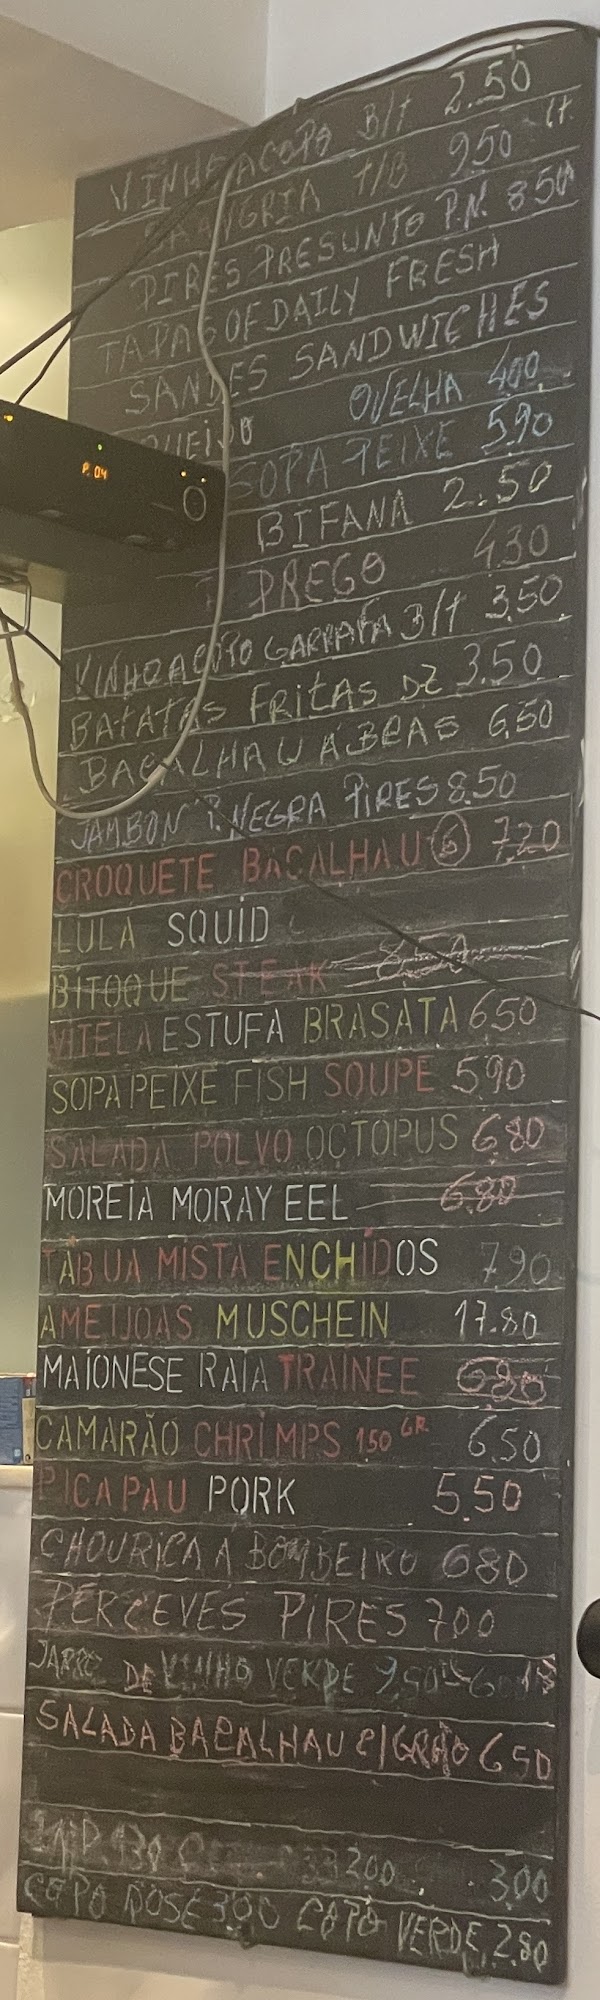 VINHO A COPO B/t 2.50
SANGRIA T/B 950 Lt.
PIRES PRESUNTO P.N. 850
TAPAS OF DAILY FRESH
SANDES SANDWICHES
QUEIJO OVELHA 400
SOPA PEIXE 590
BIFANA 2.50
PREGO 430
VINHO A COPO GARRAFA B/t 3.50
BATATAS FRITAS DZ 3.50
BACALHAU A BRAS 6.50
JAMBON P. NEGRA PIRES 8.50
CROQUETE BACALHAU 6 720
LULA SQUID
BITOQUE STEAK
VITELA ESTUFA BRASATA 650
SOPA PEIXE FISH SOUPE 590
SALADA POLVO OCTOPUS 6.80
MOREIA MORAY EEL 6.80
TÁBUA MISTA ENCHIDOS 790
AMEIJOAS MUSCHEIN 17.80
MAIONESE RAIA TRAINEE 680
CAMARÃO CHRIMPS 150 GR 6.50
PICA PAU PORK 5.50
CHOURICA A BOMBEIRO 680
PERCEVES PIRES 700
JARRO DE VINHO VERDE 9,50
SALADA BACALHAU C/GRÃO 650
200 300
COPO ROSE 300 COPO VERDE 2.80
P. 04